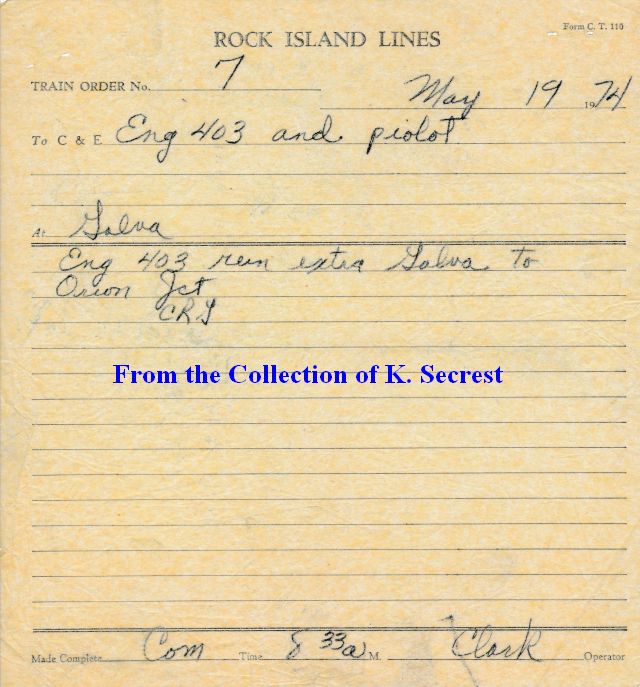 Form C. T. 110
ROCK ISLAND LINES
TRAIN ORDER No. 7
May 19 1974
To C & E Eng 403 and piolot
At Galva
Eng 403 run extra Galva to
Orion Jct
From the Collection of K. Secrest
Made Complete Com Time 8 33 a M. Clark Operator